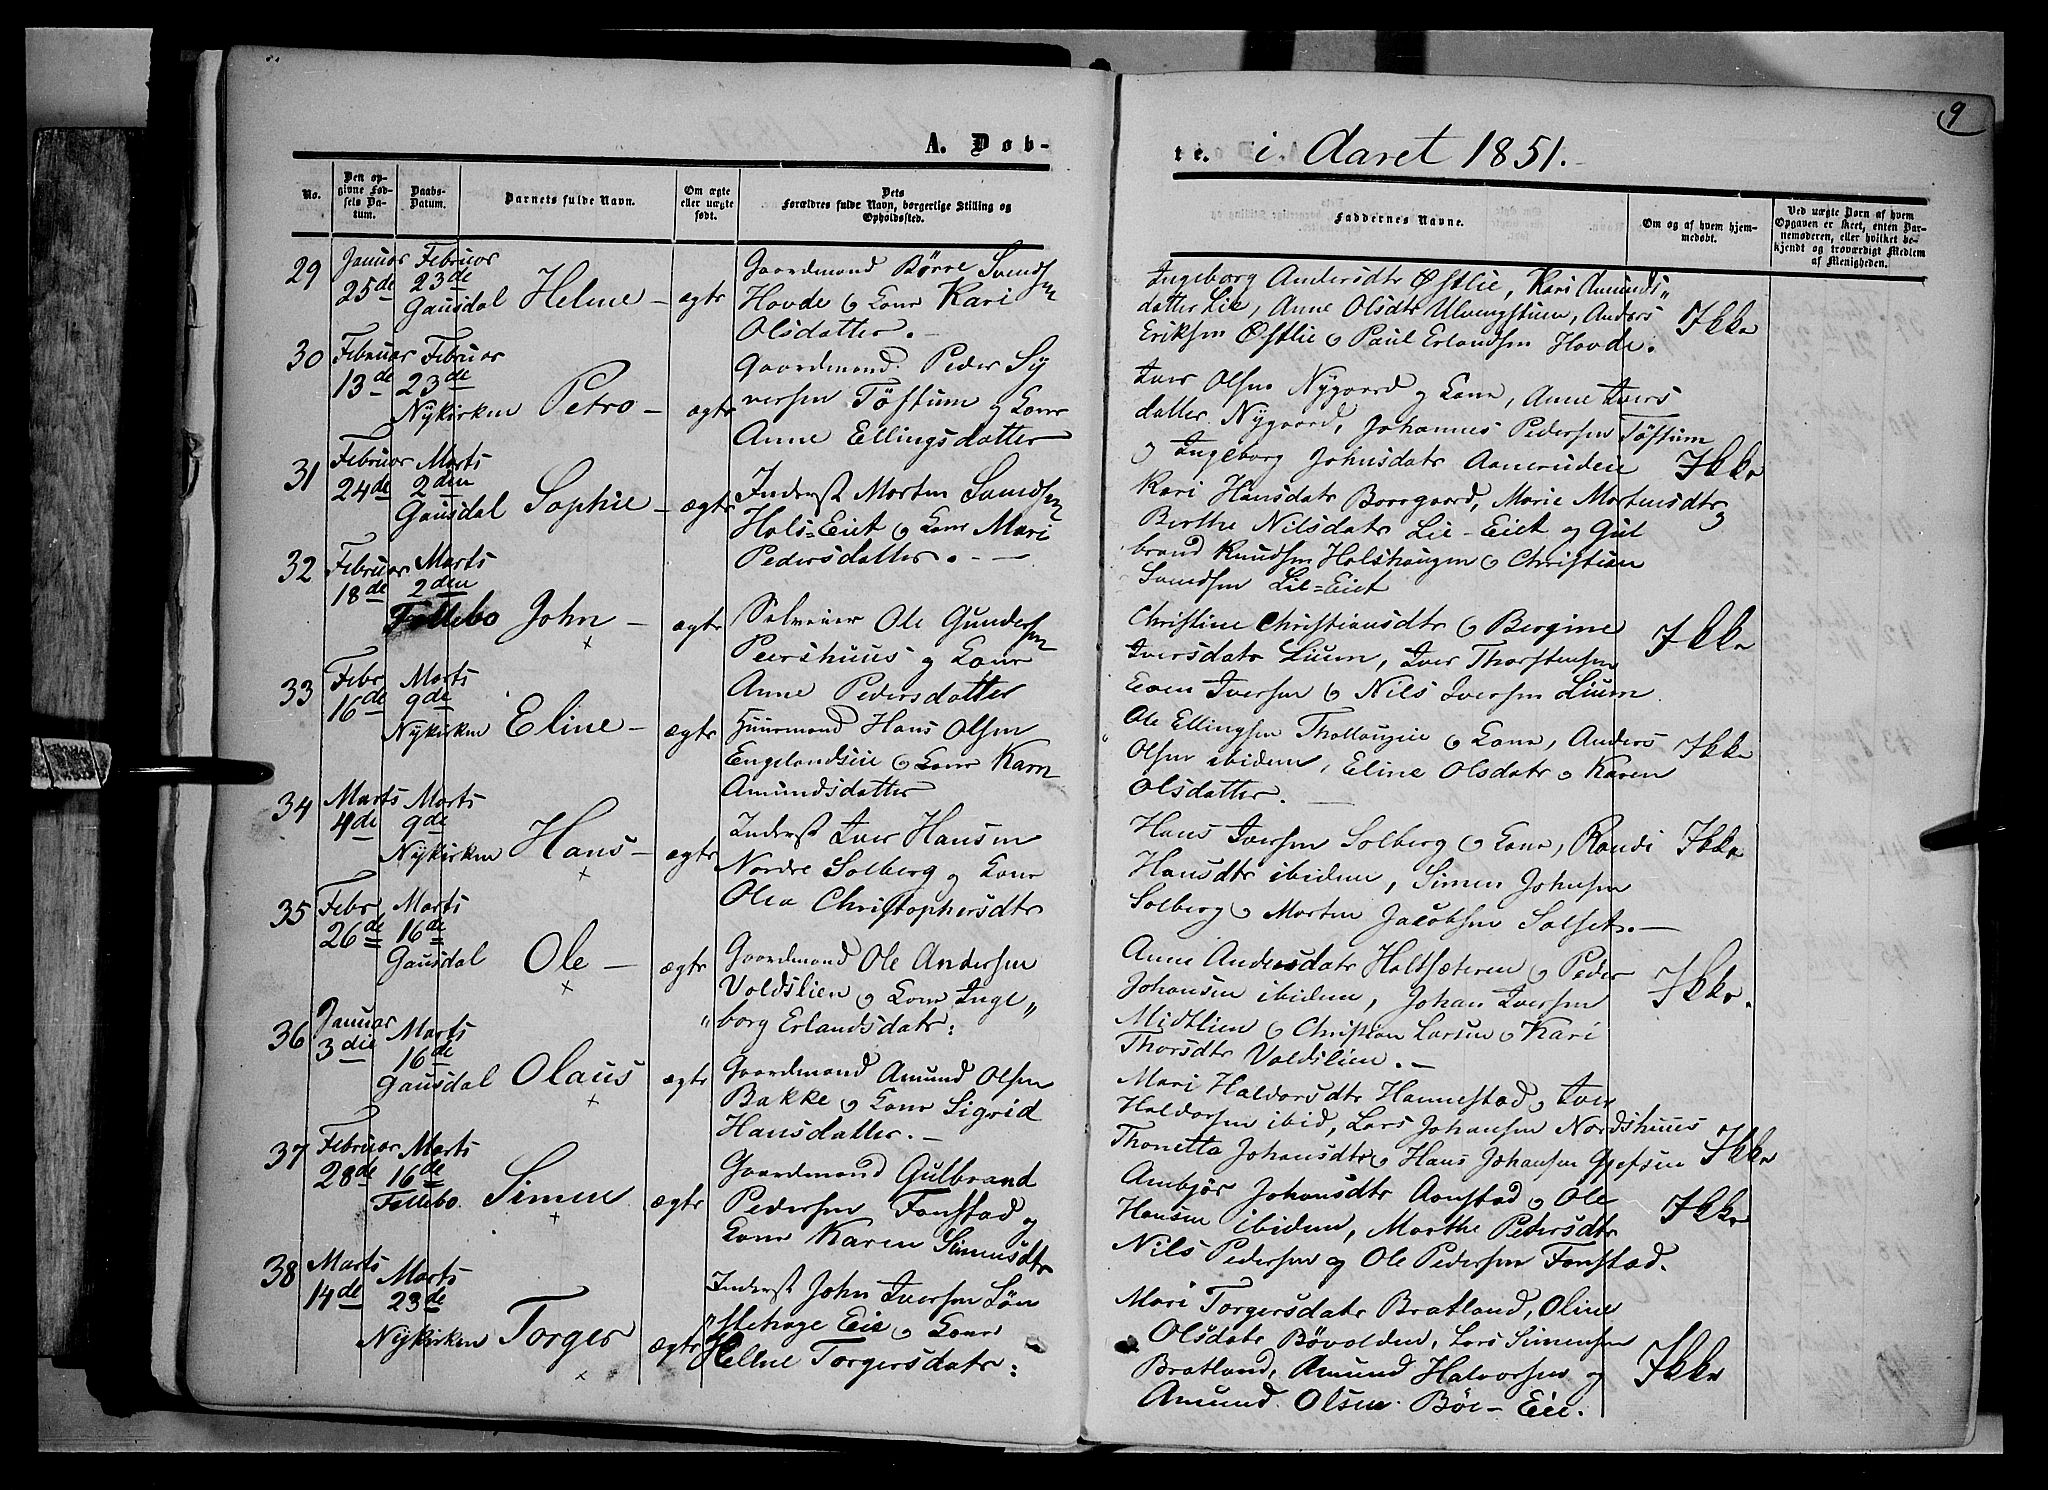 9
A. Døb-
te. i Aaret 1851.
No.
Den op-
givne Fød-
sels Da-
tum.
Daabs-
Datum.
Barnets fulde Navn.
Om ægte
eller uægte
født.
Dets
Forældres fulde Navn, borgerlige Stilling og
Opholdssted.
Faddernes Navne.
Om og af hvem hjem-
medøbt.
Ved uægte Børn af hvem
Opgaven er skeet, enten Bar-
nemoderen, eller hvilket be-
kjendt og troværdigt Medlem
af Menigheden.
29
Januar
25de
Februar
23de
Gausdal
Helene
ægte
Gaardmand Børre Svends
Hovde og Kone Kari
Olsdatter.
Ingeborg Andersdtr Østlie, Kari Amunds
datter Lie, Anne Olsdtr Ulvingstuen, Anders
Eriksen Østlie og Paul Erlandsen Hovde.
Ikke
30
Februar
13de
Februar
23de
Nykirken
Petro
ægte
Gaardmand Peder Sy
versen Tøftum og Kone
Anne Ellingsdatter
Iver Olsen Nygaard og Kone, Anne Ivers
datter Nygaard, Johannes Pedersen Tøftum
og Ingeborg Johnsdatr Aaneruden
Ikke
31
Februar
24de
Marts
2den
Gausdal
Sophie
ægte
Inderst Morten Svends
Hols=Eiet og Kone Mari
Pedersdatter.
Kari Hansdatr Borrgaard, Marie Mortensdtr
Berthe Nilsdatr Lie-Eiet og Gul
brand Knudsen Holshaugen og Christian
Svendsen Lie=Eiet
32
Februar
18de
Marts
2den
Follebo
John
ægte
Selveier Ole Gunders
Peershuus og Kone
Anne Pedersdatter
Christine Christiansdtr og Bergine
Iversdatr Lium, Iver Thorstensen
Even Iversen og Nils Iversen Lium
Ikke
33
Febr
16de
Marts
9de
Nykirken
Eline
ægte
Huusmand Hans Olsen
Engelandseie og Kone Karn
Amundsdatter
Ole Ellingsen Thollaugeie og Kone, Anders
Olsen ibidem, Eline Olsdatr og Karen
Olsdatter.
Ikke
34
Marts
4de
Marts
9de
Nykirken
Hans
ægte
Inderst Iver Hansen
Nordre Solberg og Kone
Olea Christophersdtr
Hans Iversen Solberg og Kone, Randi
Hansdtr ibidem, Simen Johnsen
Solberg og Morten Jacobsen Solset.
Ikke
35
Febr
26de
Marts
16de
Gausdal
Ole
ægte
Gaardmand Ole Andersen
Voldslien og Kone Inge
borg Erlandsdatr:
Anne Andersdatr Holtsæteren og Peder
Johansen ibidem, Johan Iversen
Midtlien og Christian Larsen og Kari
Thorsdtr Voldslien.
Ikke.
36
Januar
3die
Marts
16de
Gausdal
Olaus
ægte
Gaardmand Amund Olsen
Bakke og Kone Sigrid
Hansdatter.
Mari Haldorsdtr Hannestad og Iver
Haldorsen ibid, Lars Johansen Nordshuus
Thonetta Johansdtr og Hans Johansen Gjefsen
Ikke
37
Februar
28de
Marts
16de
Follebo
Simen
ægte
Gaardmand Gulbrand
Pedersen Fonstad og
Kone Karen Simensdtr
Ambjør Johansdtr Aanstad og Ole
Hansen ibidem, Marthe Pedersdtr
Nils Pedersen og Ole Pedersen Fonstad.
Ikke
38
Marts
14de
Marts
23de
Nykirken
Torger
ægte
Inderst John Iversen Løn
stehage Eie og Kone
Hellne Torgersdatr:
Mari Torgersdatr Bratland, Oline
Olsdatr Bøvolden, Lars Simensen
Bratland, Amund Halvorsen og
Amund Olsen Bøe-Eie.
Ikke